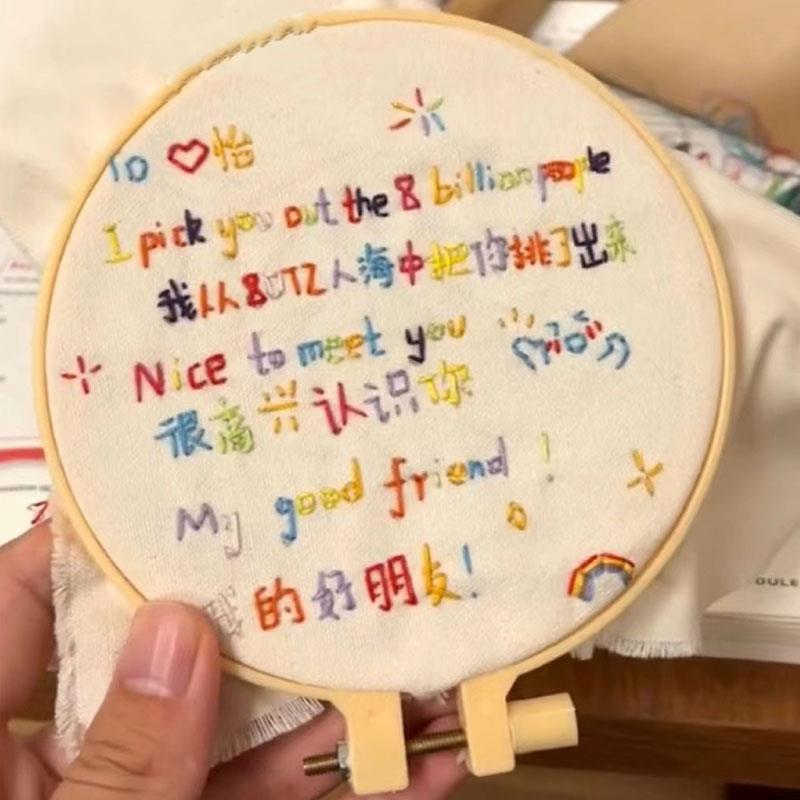 To ♡怡
I pick you out the 8 billion people
我从80亿人海中把你挑了出来
Nice to meet you
很高兴认识你
My good friend!
我的好朋友!
DULE